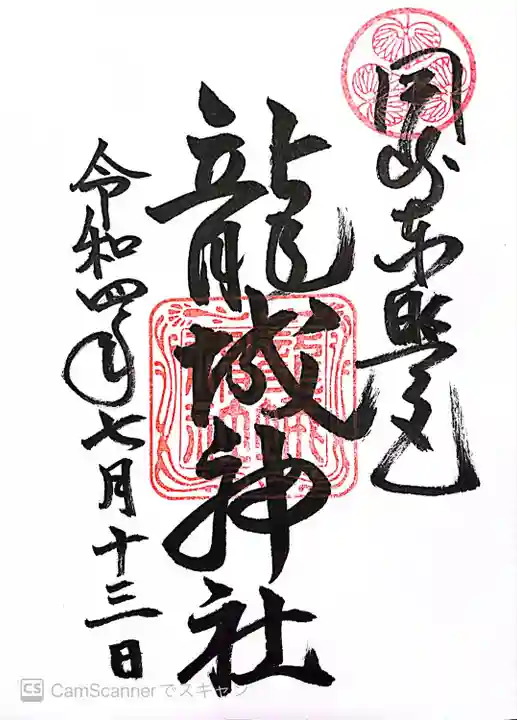 岡崎東照宮
龍城神社
令和四年七月十三日
CS CamScannerでスキャン